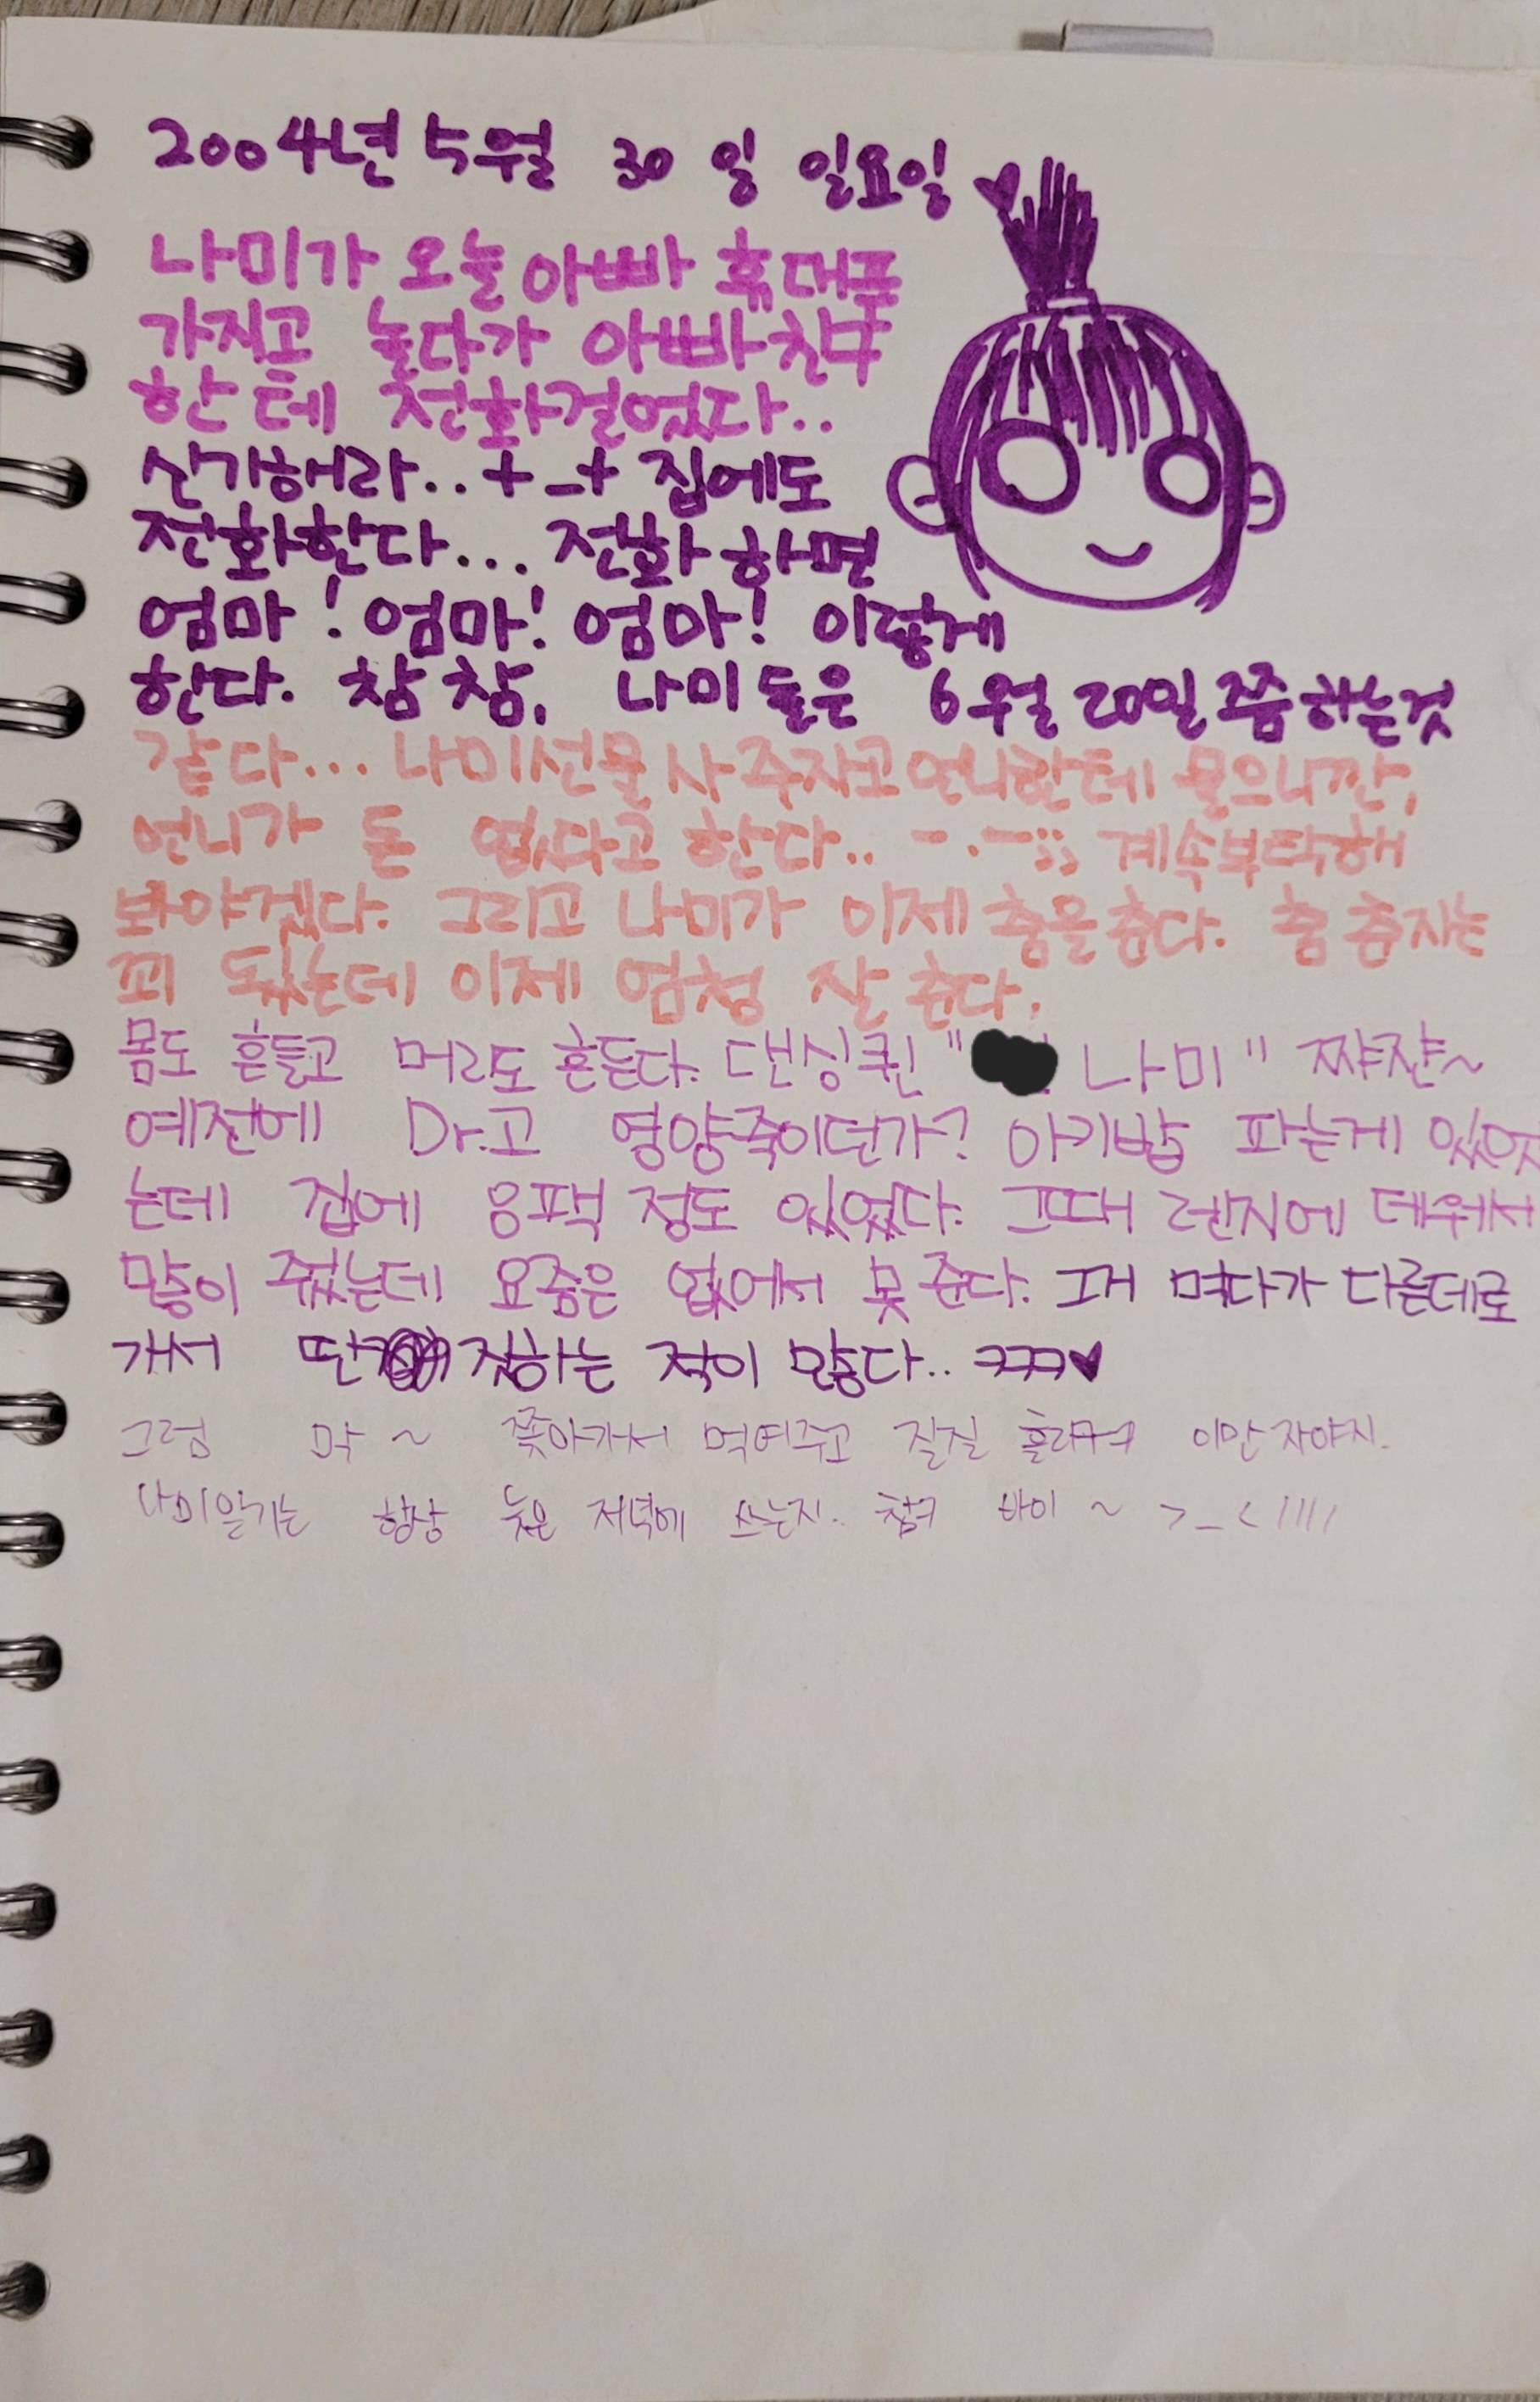 2004년 5월 30일 일요일 ♥
나미가 오늘 아빠 휴대폰
가지고 놀다가 아빠친구
한테 전화걸었다..
신기해라..+_+ 집에도
전화한다... 전화하면
엄마! 엄마! 엄마! 이렇게
한다. 참참, 나미돌은 6월 20일쯤하는것
같다... 나미선물사주자고언니한테 물으니깐,
언니가 돈 없다고 한다.. -.-;; 계속부탁해
봐야겠다. 그리고 나미가 이제 춤을춘다. 춤 춘지는
꾀 됬는데 이제 엄청 잘 춘다.
몸도 흔들고 머리도 흔든다. 댄싱퀸 " 나미" 쨔쟌~
예전에 Dr.고 영양죽이던가? 아기밥 파는게 있었
는데 집에 8팩 정도 있었다. 그때 렌지에 데워서
많이 줬는데 요즘은 없어서 못준다. 그거 먹다가 다른데로
가서 딴 짓하는 적이 많다.. ㅋㅋㅋ♥
그럼 막~ 쫓아가서 먹여주고 질질 흘리구ㅋ 이만 자야지.
나미일기는 항상 늦은 저녁에 쓰는지.. 참ㅋ 바이~ >_< ////